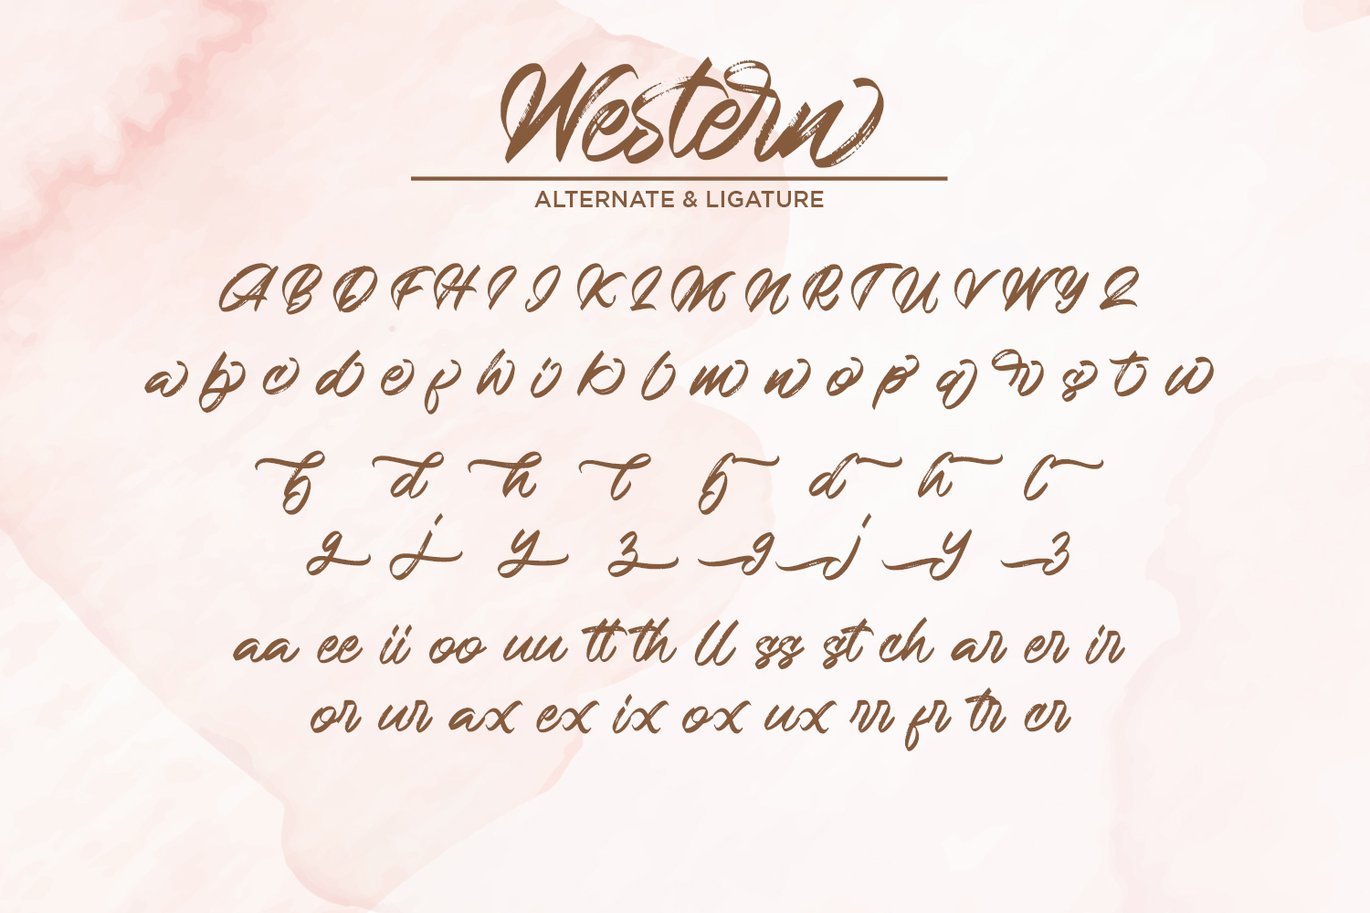 Western
ALTERNATE & LIGATURE
A B D F H I J K L M N R T U V W Y Z
a b c d e f h i k l m n o p q r s t u
b d h l b d h l
g j y z g j y z
aa ee ii oo uu tt th ll ss st ch ar er ir
or ur ax ex ix ox ux rr fr tr cr